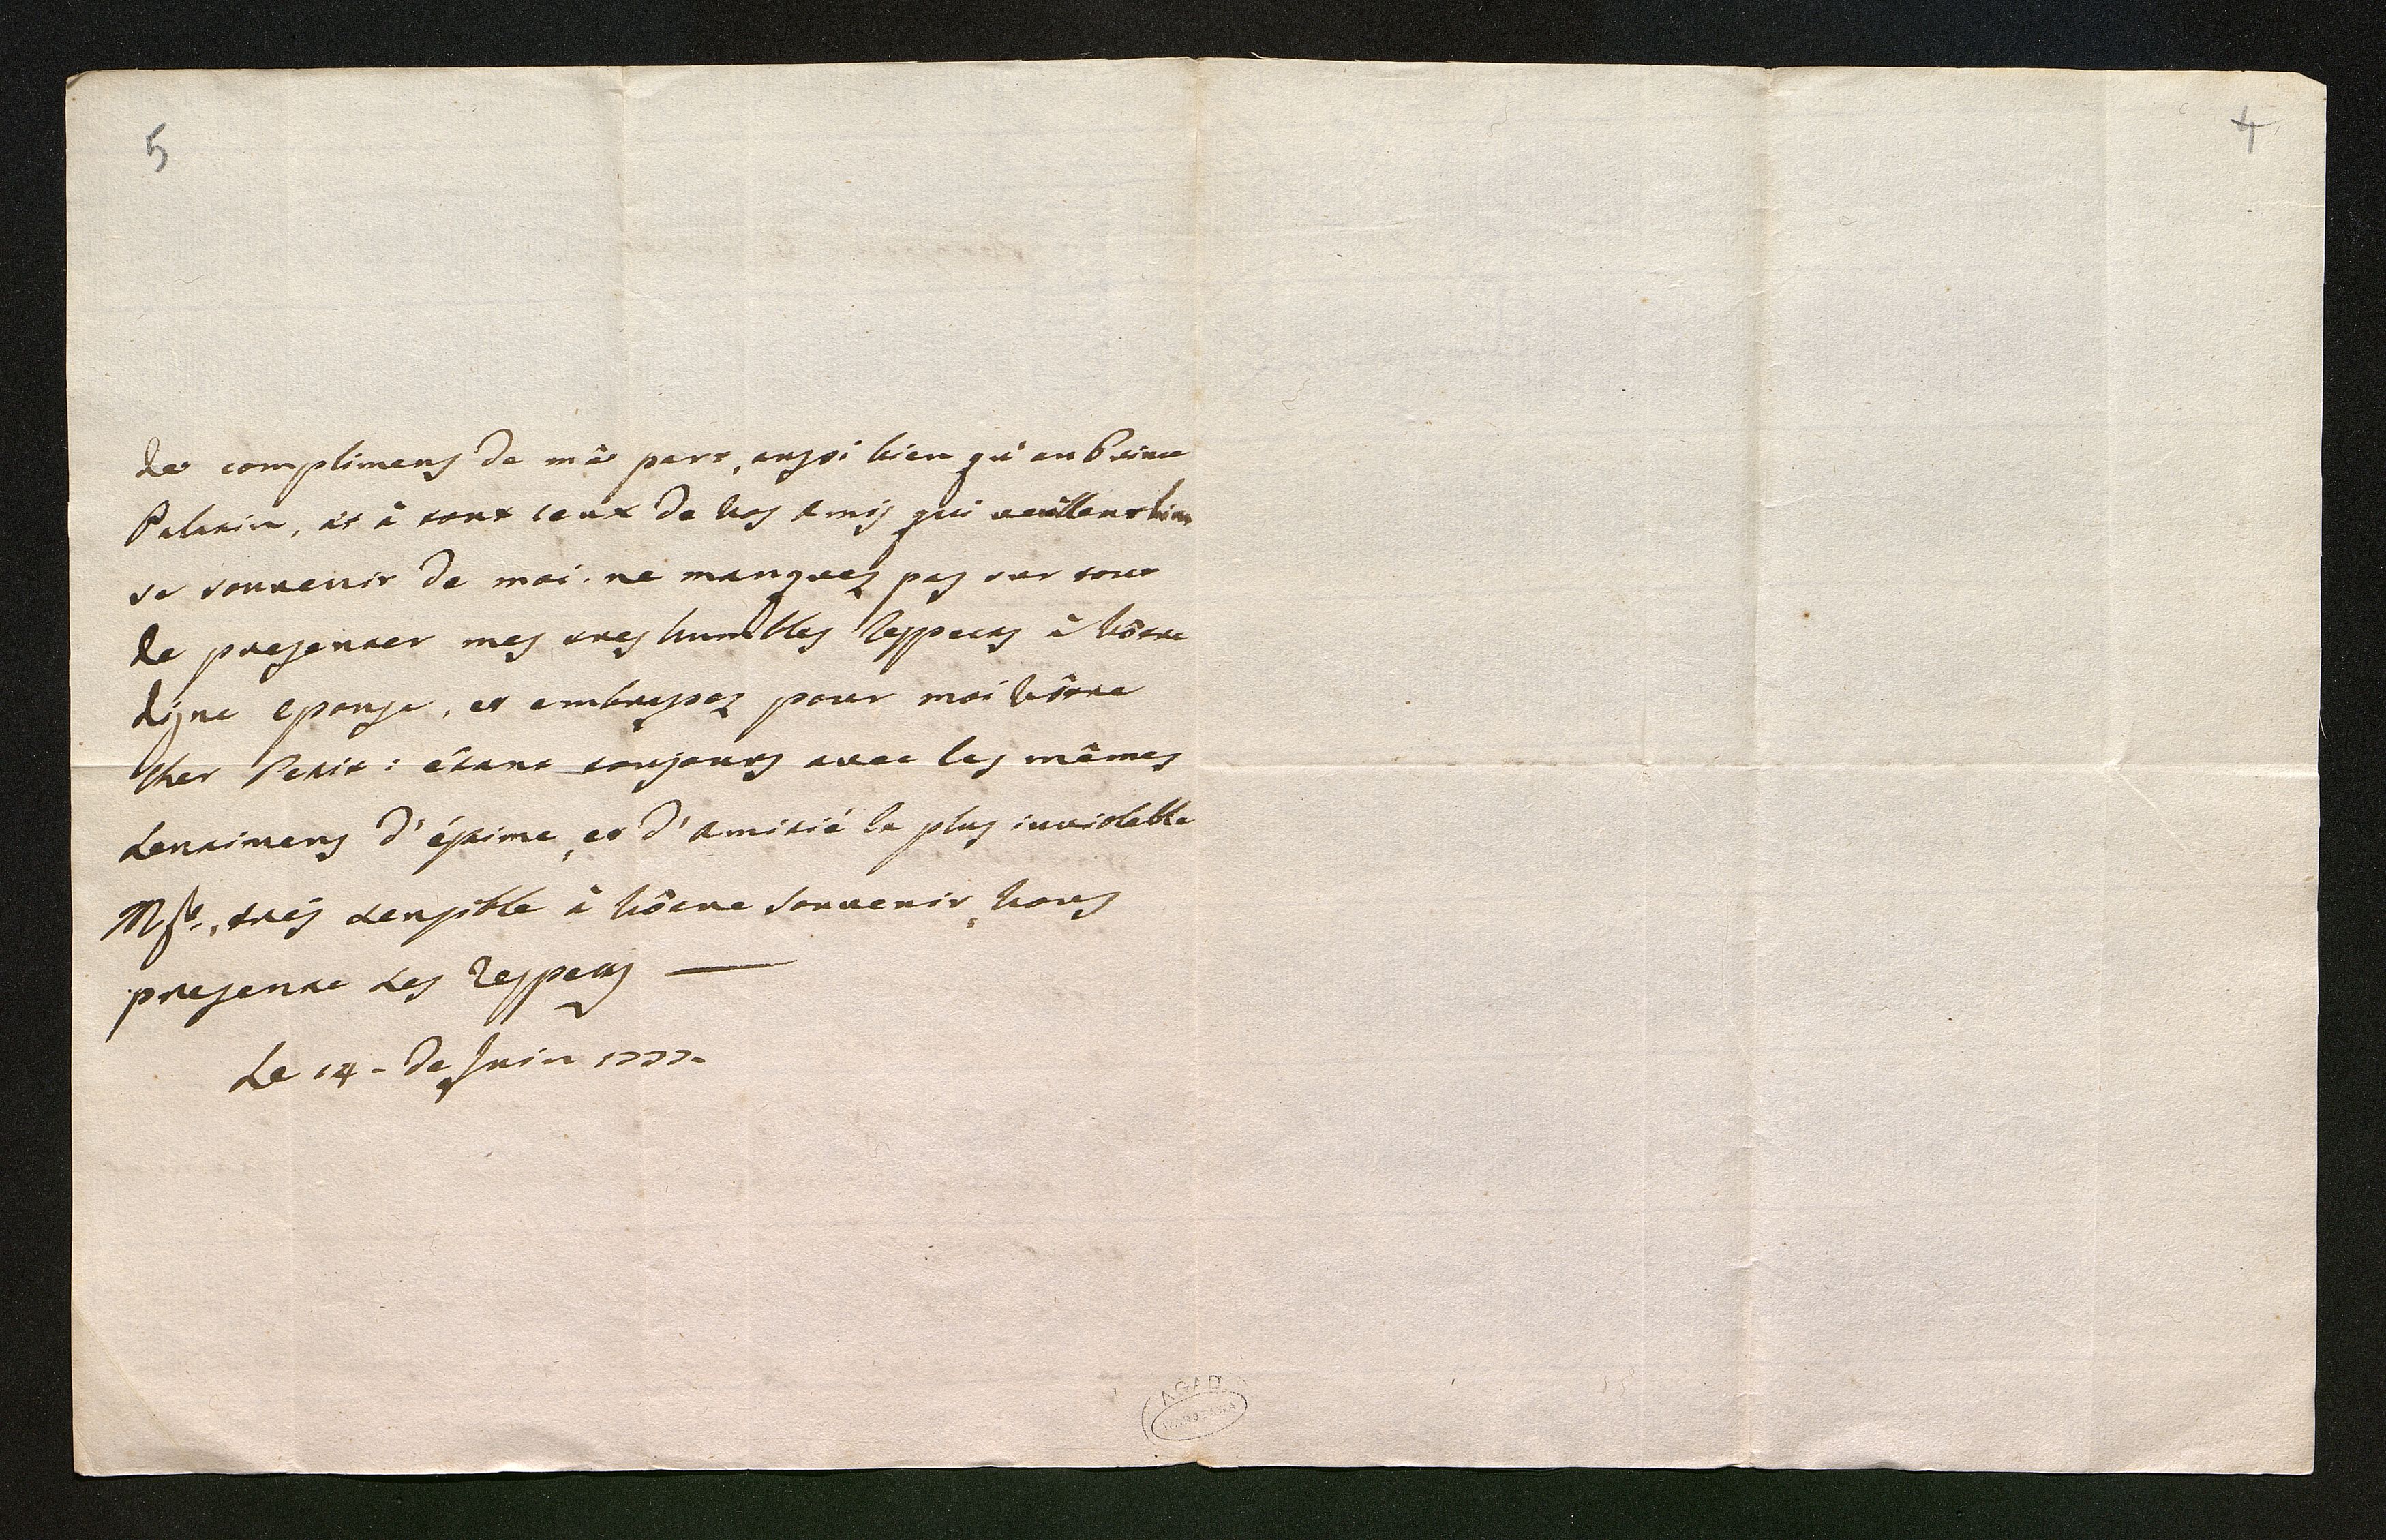 5
4
des complimens de mâ part, aussi bien qu'au Prince
Palatin, et à tout ceux de vos amis qui veuillent bien
se souvenir de moi. ne manquez pas sur tout
de presenter mes tres humbles respects à vôtre
digne epouse, et embrassez pour moi vôtre
cher Petit: étant toujours avec les mêmes
sentimens d'éstime, et d'amitié la plus inviolable
trés sensible à vôtre souvenir, vous
presente ses respects —
Le 14 - de Juin 1777.
AGAD
WARSZAWA